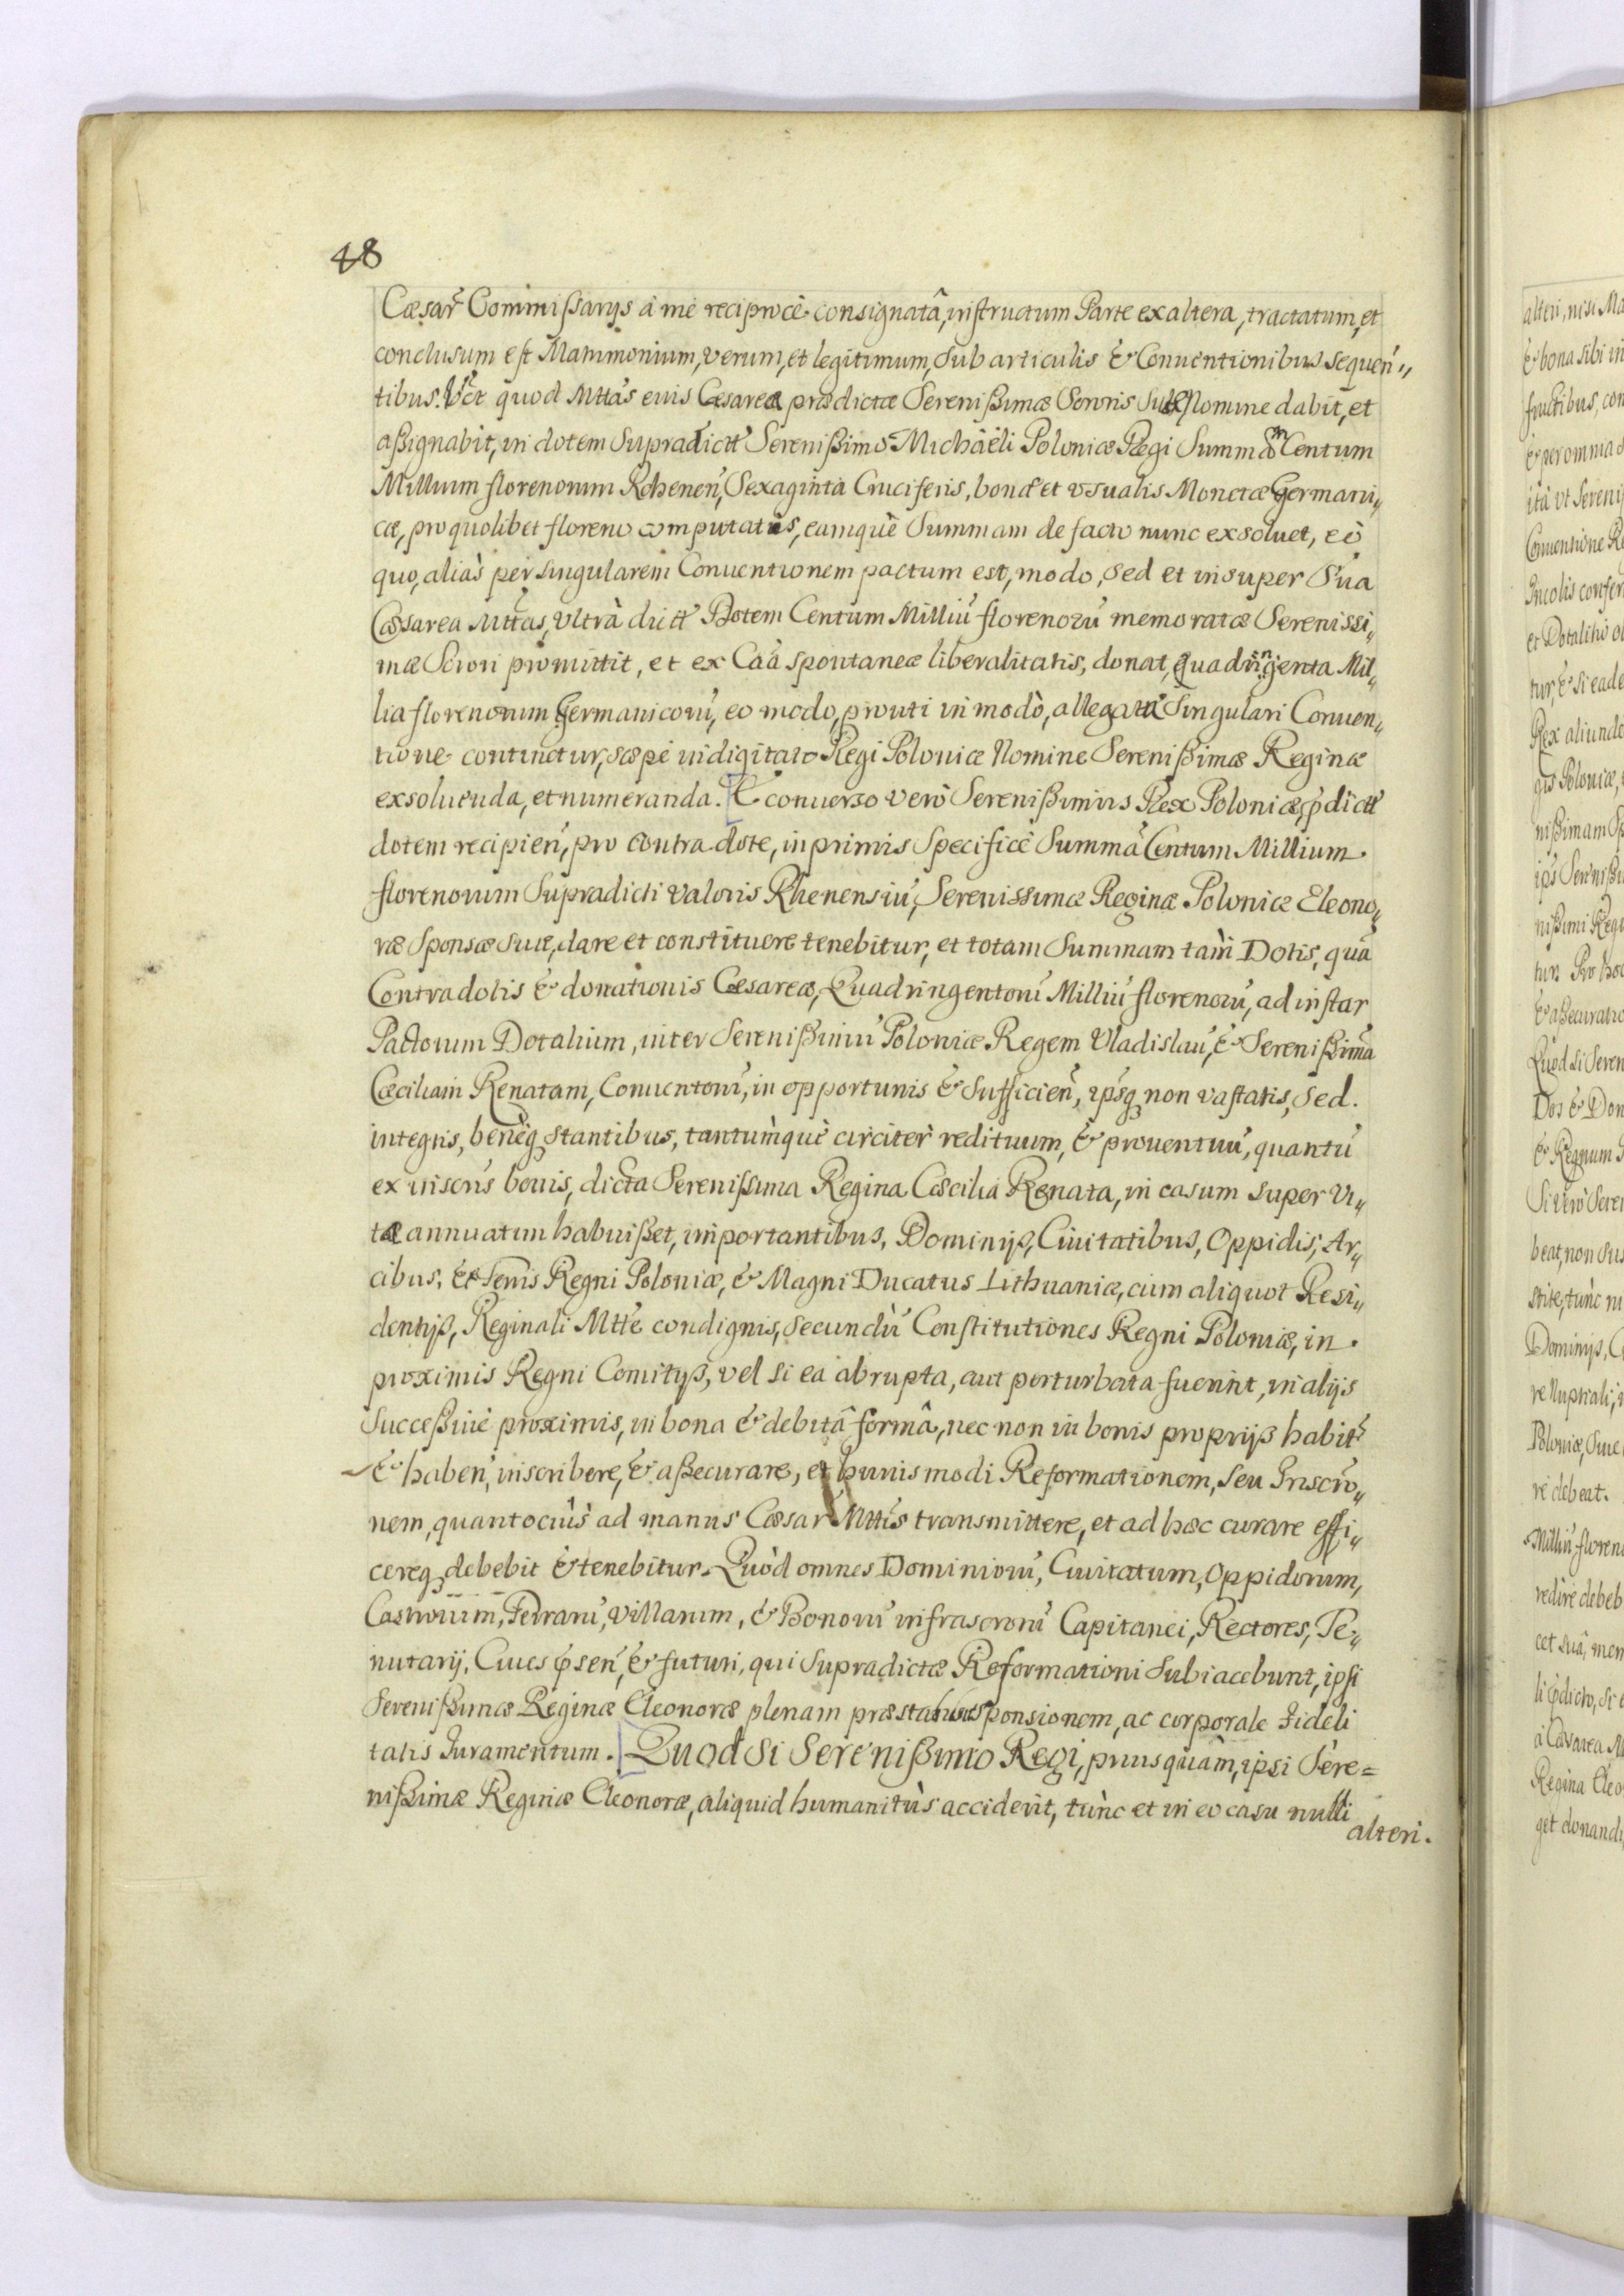 48
Cæsar̃ Commissarys à me reciprocè consignatâ, instructum Parte ex altera, tractatum, et
conclusum est Matrimonium, verum, et legitimum, Sub articulis & Conuentionibus sequen„
tibus. Vct quod Mttas eius Cesarea prædictæ Serenißimæ Sororis suæ Nomine dabit, et
aßignabit, in dotem Supradictt Serenißimo Michäeli Poloniæ Regi Summam Centum
Millium florenorum Rhenen̄, Sexaginta Cruciferis, bonæ et vsualis Monetæ Germani„
cæ, pro quolibet floreno computatis, eamquè Summam de facto nunc exsoluet, eò
quo, aliàs per singularem Conuentionem pactum est, modo, Sed et insuper Sua
Cæsarea Mttas, Vltrà dictt Dotem Centum Milliū florenorū memoratæ Serenissi„
mæ Sorori promittit, et ex Caâ spontaneæ liberalitatis, donat, quadringenta Mil„
lia florenorum Germanicorū, eo modo, prouti in modò, allegata Singulari Conuen„
tione continetur, sæpè indigitato Regi Poloniæ Nomine Serenißimæ Reginæ
exsoluenda, et numeranda. E conuerso verò Serenißimus Rex Poloniæ, p̄dictt
dotem recipien̄, pro contra dote, inprimis Specificè Summā Centum Millium
florenorum Supradicti valoris Rhenensiū, Serenissimæ Reginæ Poloniæ Eleono„
ræ Sponsæ suæ, dare et constituere tenebitur, et totam Summam tam Dotis, quā
Contradotis & donationis Cæsareæ, Quadringentorū Milliū florenorū, ad instar
Pactorum Dotalium, inter Serenißimū Poloniæ Regem Vladislaū, & Serenißimā
Cæciliam Renatam, Conuentorū, in opportunis & Sufficien̄, ipsq3 non vastatis, Sed
integris, benèq3 stantibus, tantùmquè circiter redituum, & prouentuū, quantū
ex inscris bonis, dicta Serenissima Regina Cæcilia Renata, in casum super Vi„
tæ annuatim habuißet, importantibus, Dominijß, Ciuitatibus, Oppidis, Ar„
cibus, & Terris Regni Poloniæ, & Magni Ducatus Lithuaniæ, cum aliquot Resi„
dentijß, Reginali Mtte condignis, Secundū Constitutiones Regni Poloniæ, in
proximis Regni Comitijß, vel si ea abrupta, aut perturbata fuerint, in alijs
Succeßiuè proximis, in bona & debitâ formâ, nec non in bonis proprijß habit̃
& haben̄, inscribere, & aßecurare, et huiusmodi Reformationem, Seu Inscrio„
nem, quantociùs ad manus Cæsar̃ Mttis transmittere, et ad hoc curare effi„
cereq3 debebit & tenebitur. Quòd omnes Dominiorū, Ciuitatum, Oppidorum,
Castrorum, Terrarū, Villarum, & Bonorū infrascrorū Capitanei, Rectores, Te„
nutarij, Ciues p̄sen̄, & futuri, qui Supradictæ Reformationi Subiacebunt, ipsi
Serenißimæ Reginæ Eleonoræ plenam præstabunt sponsionem, ac corporale Fideli
tatis Iuramentum. Quod si Serenißimo Regi, priusquàm, ipsi Sere=
nißimæ Reginæ Eleonoræ, aliquid humanitùs acciderit, tùnc et in eo casu nulli
alteri.